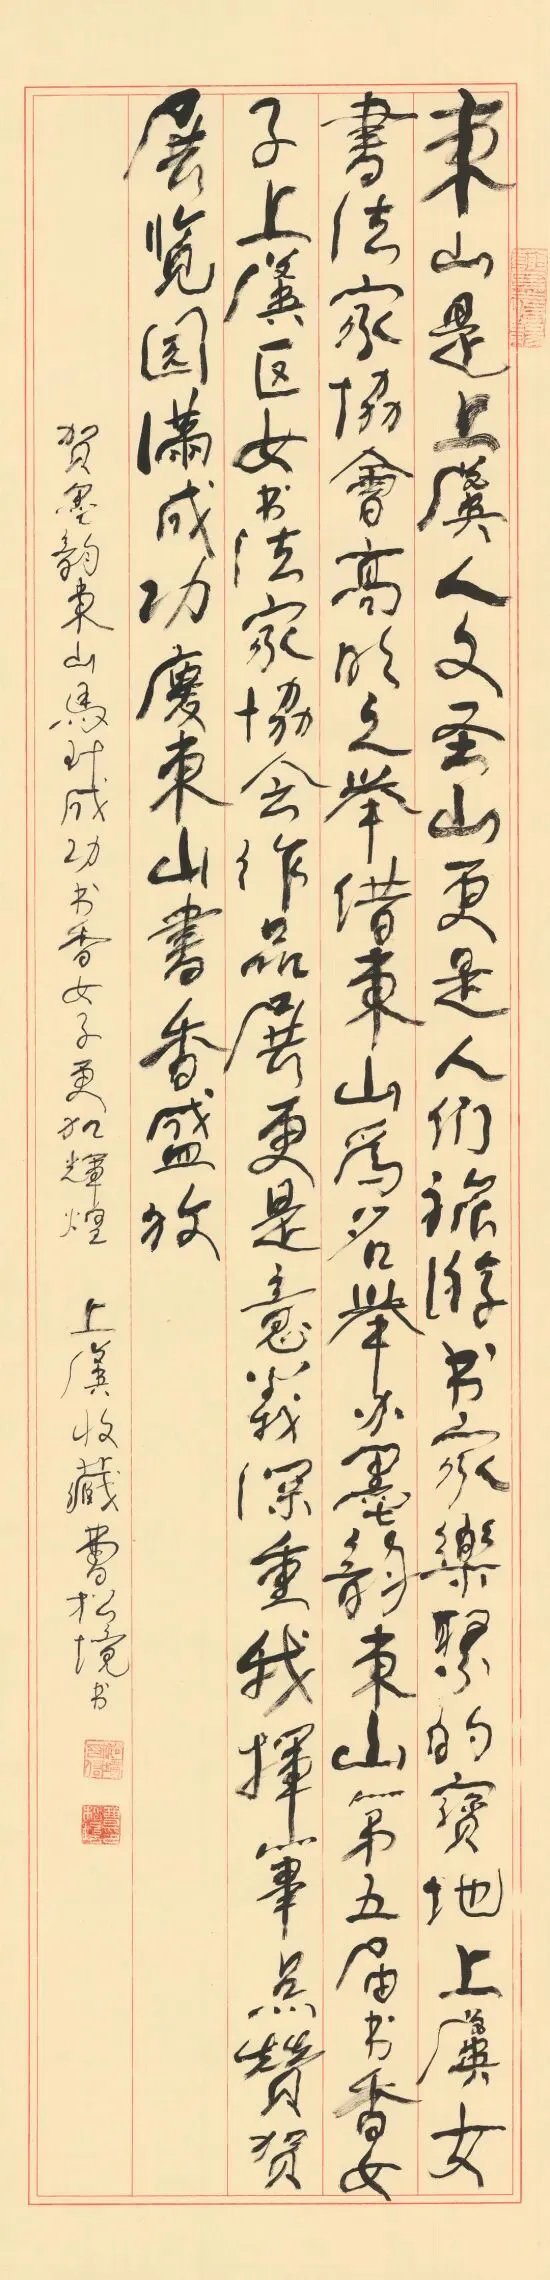 東山是上虞人文圣山更是人们旅游书家樂聚的寶地上虞女
書法家協會高昕之举借東山為名举办墨韵東山第五届书香女
子上虞区女书法家協会作品展更是意義深重我揮筆点赞贺
展览圆满成功慶東山書香盛放
贺墨韵東山馬到成功书香女子更加輝煌
上虞收藏曹松境书